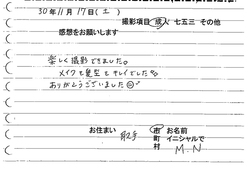 30年11月17日(土)
撮影項目 成人 七五三 その他
感想をお願いします
楽しく撮影できました。
メイクも髪型もキレイでした
ありがとうございました
お住まい 取手 市 町 村
お名前 イニシャルで
M.N